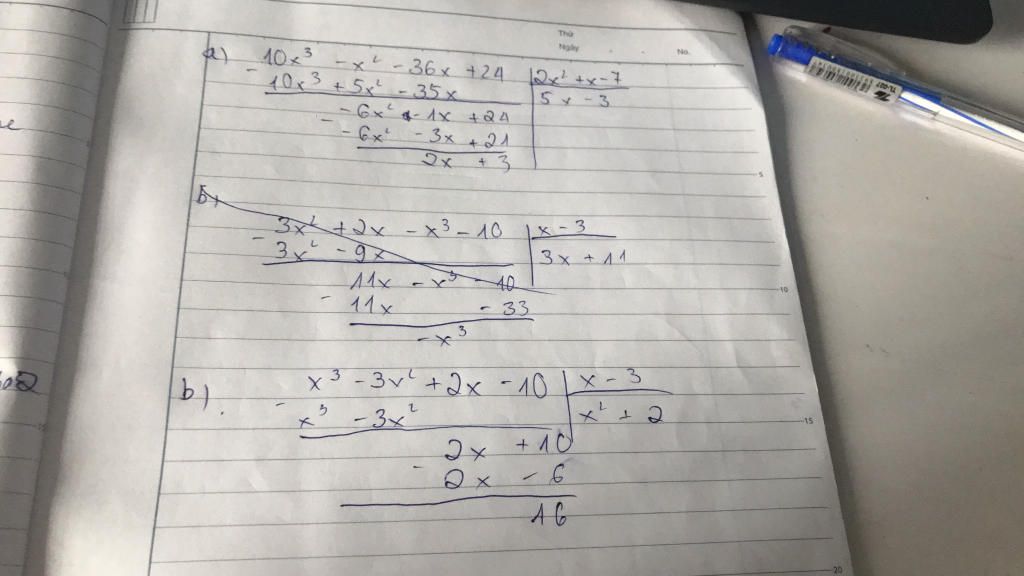 Thứ
Ngày No.
a) 10x³ - x² - 36x + 24 | 2x² + x - 7
- 10x³ + 5x² - 35x | 5x - 3
- 6x² - 1x + 24
- - 6x² - 3x + 21
2x + 3
5
b)
3x² + 2x - x³ - 10 | x - 3
- 3x² - 9x | 3x + 11
11x - x³ - 10
10
- 11x - 33
- x³
b). x³ - 3x² + 2x - 10 | x - 3
- x³ - 3x² | x² + 2
15
2x + 10
- 2x - 6
16
20